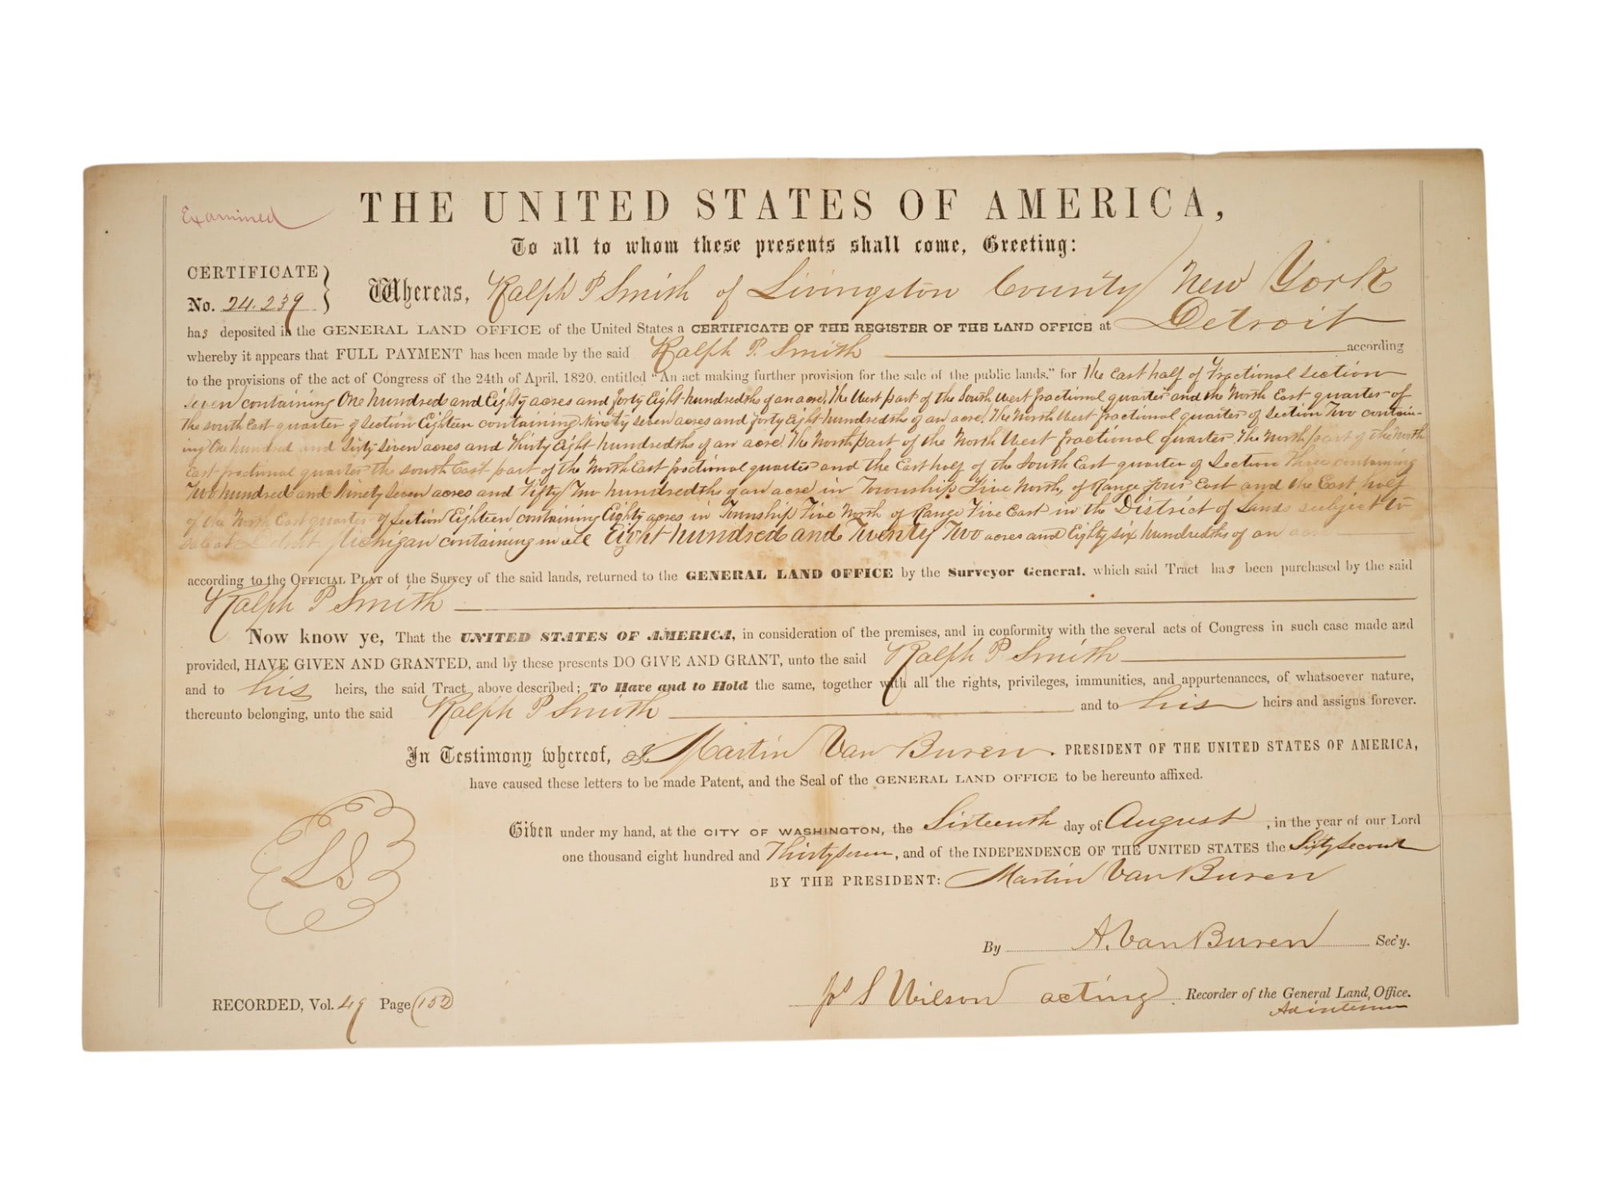 Examined
THE UNITED STATES OF AMERICA,
To all to whom these presents shall come, Greeting:
CERTIFICATE
No. 24.239
Whereas, Ralph P Smith of Livingston County New York
has deposited in the GENERAL LAND OFFICE of the United States a CERTIFICATE OF THE REGISTER OF THE LAND OFFICE at Detroit
whereby it appears that FULL PAYMENT has been made by the said Ralph P. Smith according
to the provisions of the act of Congress of the 24th of April, 1820, entitled "An act making further provision for the sale of the public lands," for The East half of Fractional section
seven containing One hundred and Eighty acres and forty Eight hundredths of an acre, The West part of the South West fractional quarter and the North East quarter of
the south East quarter of section Eighteen containing Ninety seven acres and forty Eight hundredths of an acre, The North West fractional quarter of section Two contain-
ing One hundred and Sixty seven acres and Thirty Eight hundredths of an acre, The North part of the North West fractional quarter, The North part of the North
East fractional quarter the south East part of the North East fractional quarter and the East half of the South East quarter of Section Three containing
Two hundred and Ninety seven acres and Fifty Two hundredths of an acre in Township Five North, of Range four East and the East half
of the North East quarter of section Eighteen containing Eighty acres in Township Five North of Range Five East in the District of Lands subject to
sale at Detroit Michigan containing in all Eight hundred and Twenty Two acres and Eighty six hundredths of an acre
according to the OFFICIAL PLAT of the Survey of the said lands, returned to the GENERAL LAND OFFICE by the Surveyor General, which said Tract has been purchased by the said
Ralph P Smith
Now know ye, That the UNITED STATES OF AMERICA, in consideration of the premises, and in conformity with the several acts of Congress in such case made and
provided, HAVE GIVEN AND GRANTED, and by these presents DO GIVE AND GRANT, unto the said Ralph P Smith
and to his heirs, the said Tract above described; To Have and to Hold the same, together with all the rights, privileges, immunities, and appurtenances, of whatsoever nature,
thereunto belonging, unto the said Ralph P Smith and to his heirs and assigns forever.
In Testimony whereof, I Martin Van Buren. PRESIDENT OF THE UNITED STATES OF AMERICA,
have caused these letters to be made Patent, and the Seal of the GENERAL LAND OFFICE to be hereunto affixed.
LS
Given under my hand, at the CITY OF WASHINGTON, the Sixteenth day of August, in the year of our Lord
one thousand eight hundred and Thirty seven, and of the INDEPENDENCE OF THE UNITED STATES the Sixty second
BY THE PRESIDENT: Martin Van Buren
By A. Van Buren Sec'y.
RECORDED, Vol. 49 Page (152)
Js S Wilson acting Recorder of the General Land Office.
Ad interim